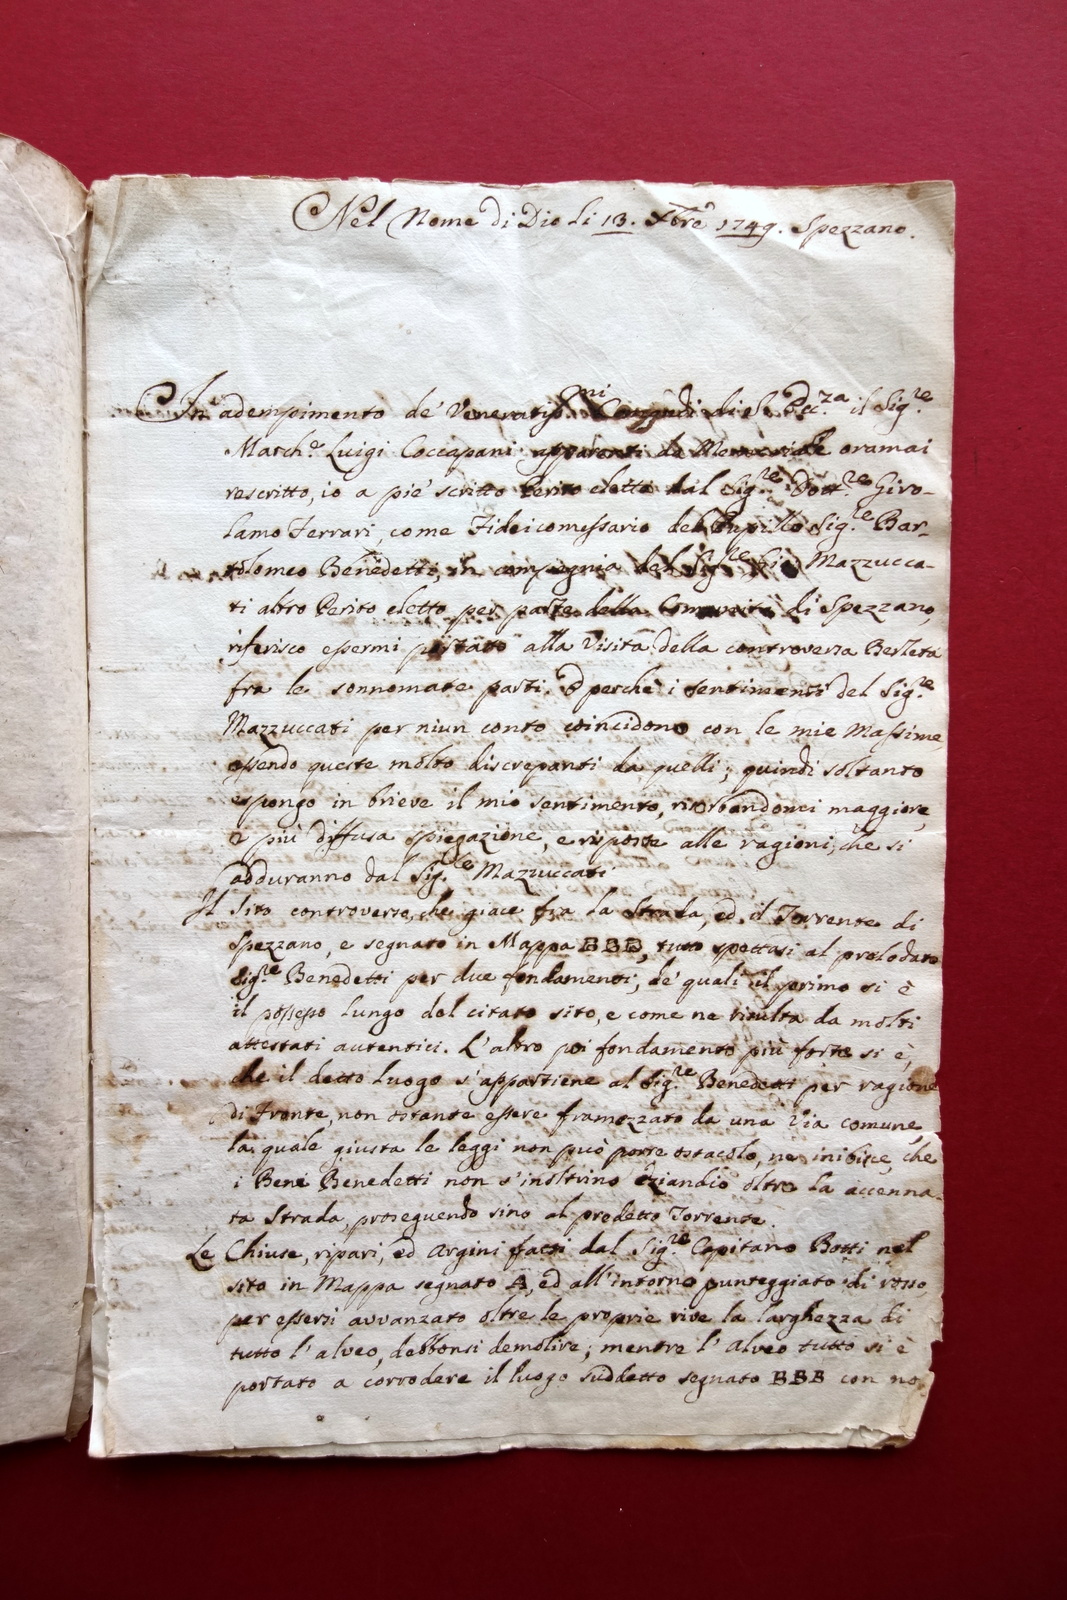 Nel Nome di Dio li 13. Xbre 1749. Spezzano.
In adempimento de' Veneratiss.mi Comandi di S. Ecc.za il Sig.re
March.e Luigi Coccapani apparenti da Memoriale oramai
rescritto, io a piè scritto Perito eletto dal Sig.re Dott.re Giro-
lamo Ferrari, come Fideicomessario del Pupillo Sig.re Bar-
tolomeo Benedetti, in compagnia del Sig.re Mazzucca-
ti altro Perito eletto per parte della Comunità di Spezzano,
riferisco essermi portato alla Visita della controversa Berleta
fra le sonnomate parti. E perchè i sentimenti del Sig.re
Mazzuccati per niun conto coincidono con le mie Massime
essendo queste molto discrepanti da quelli; quindi soltanto
espongo in brieve il mio sentimento, riserbandomi maggiore,
e più diffusa spiegazione, e risposte alle ragioni, che si
adduranno dal Sig.re Mazzuccati
Il Sito controverso, che giace fra la Strada, ed il Torrente di
Spezzano, e segnato in Mappa BBB, tutto spettasi al prelodato
Sig.re Benedetti per due fondamenti, de' quali il primo si è
il possesso lungo del citato sito, e come ne risulta da molti
attestati autentici. L'altro poi fondamento più forte si è,
che il detto Luogo s'appartiene al Sig.re Benedetti per ragione
di Fronte, non ostante essere framezzato da una Via comune,
la quale giusta le leggi non può porre ostacolo, ne inibisce, che
i Beni Benedetti non s'inoltrino eziandio oltre la accenna-
ta Strada, proseguendo sino al predetto Torrente.
Le Chiuse, ripari, ed Argini fatti dal Sig.re Capitano Botti nel
sito in Mappa segnato A, ed all'intorno punteggiato di rosso,
per essersi avvanzato oltre le proprie rive la larghezza di
tutto l'alveo, debbonsi demolire; mentre l'Alveo tutto si è
portato a corrodere il luogo suddetto segnato BBB con no